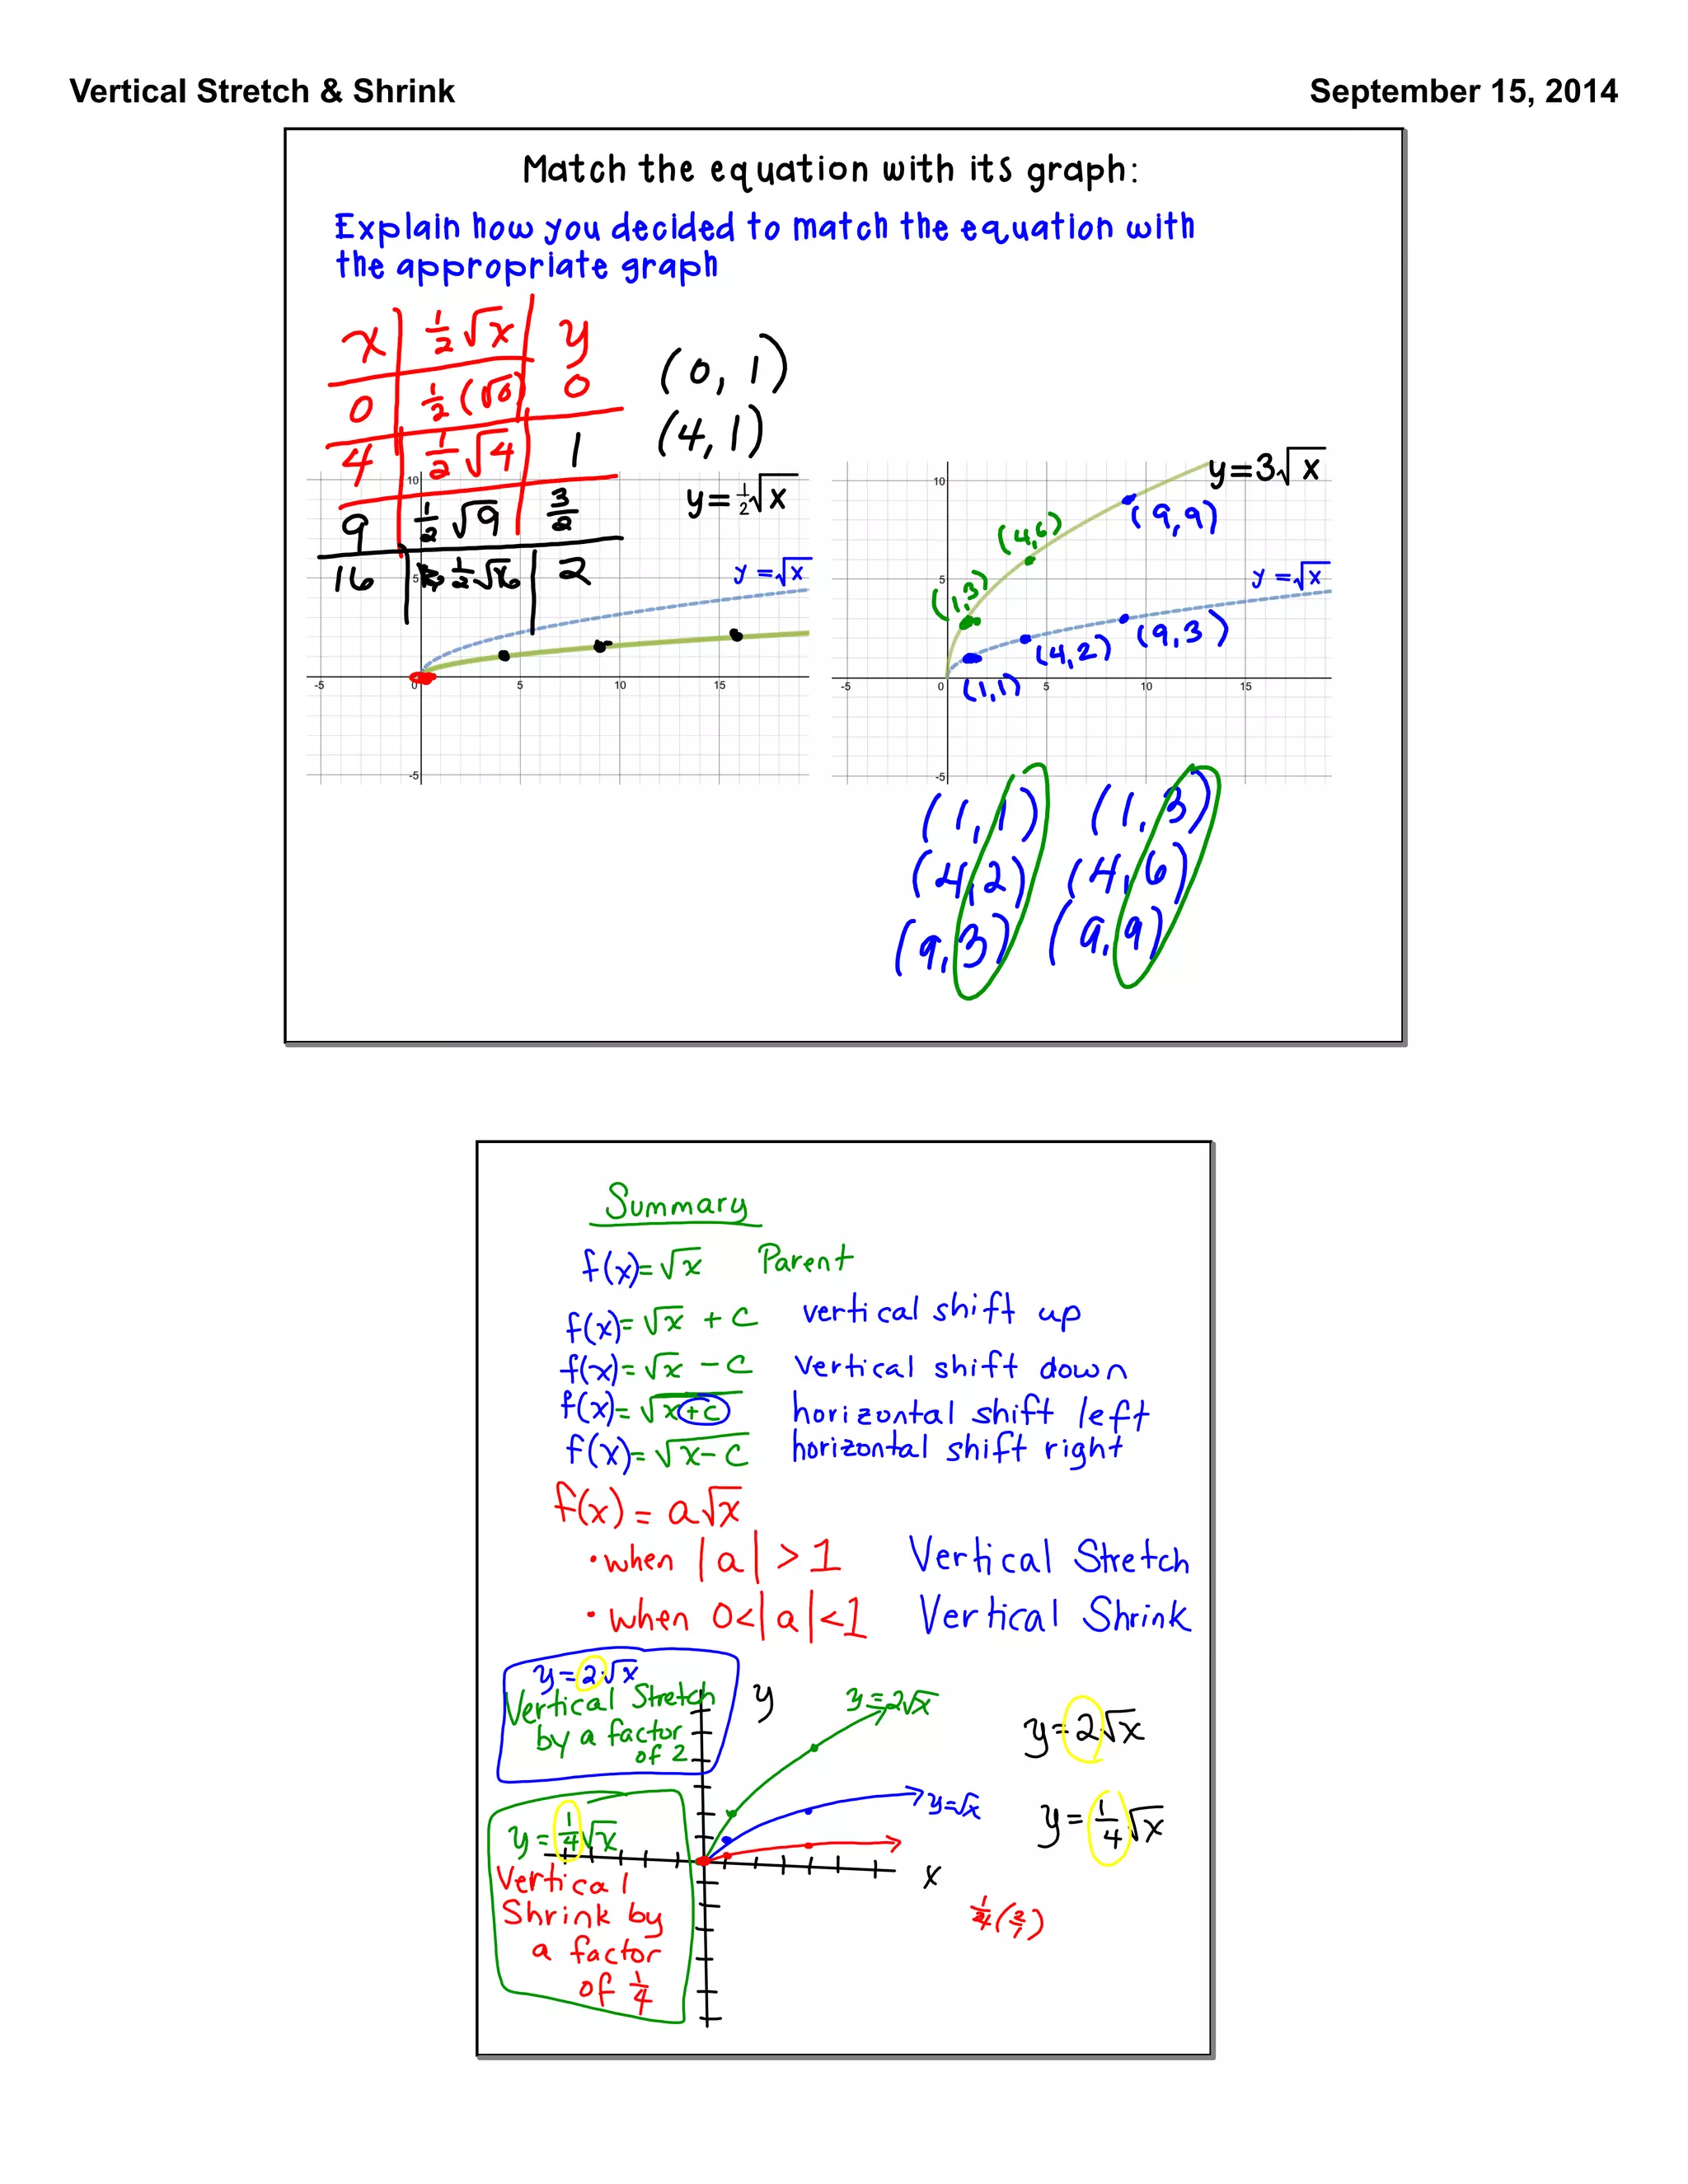 Vertical Stretch & Shrink
September 15, 2014
Match the equation with its graph:
Explain how you decided to match the equation with
the appropriate graph
x | ½√x | y
0 | ½(√0) | 0
4 | ½√4 | 1
9 | ½√9 | 3/2
16 | ½√16 | 2
(0, 1)
(4, 1)
y=½√x
y=√x
10
5
-5 0 5 10 15
-5
y=3√x
(9,9)
(4,6)
(1,3)
y=√x
(9,3)
(4,2)
(1,1)
10
5
-5 0 5 10 15
-5
(1,1) (1,3)
(4,2) (4,6)
(9,3) (9,9)
Summary
f(x)=√x Parent
f(x)=√x + c vertical shift up
f(x)=√x - c vertical shift down
f(x)=√(x+c) horizontal shift left
f(x)=√(x-c) horizontal shift right
f(x) = a√x
• when |a| > 1 Vertical Stretch
• when 0<|a|<1 Vertical Shrink
y=2√x
Vertical Stretch
by a factor
of 2
y
y=2√x
y=√x
x
y=2√x
y=¼√x
y=¼√x
Vertical
Shrink by
a factor
of ¼
¼(2/1)